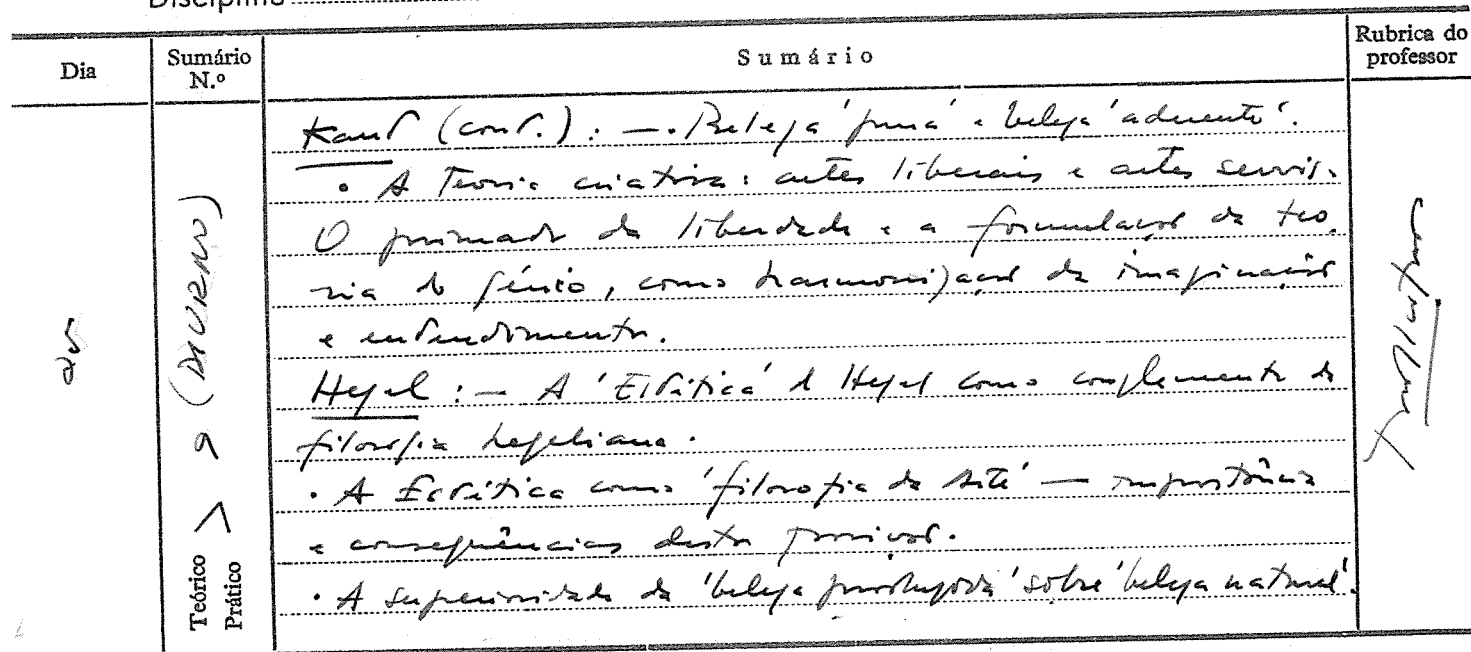 Disciplina
Dia
Sumário N.º
Sumário
Rubrica do professor
Kant (cont.): — . Beleza 'pura' e beleza 'aderente'.
. A Teoria criativa: artes liberais e artes servis.
O primado da liberdade e a formulação da teo-
ria do génio, como harmonização da imaginação
e entendimento.
Hegel: — A 'Estética' de Hegel como complemento da
filosofia hegeliana.
. A Estética como 'filosofia da arte' — importância
e consequências desta posição.
. A superioridade da 'beleza produzida' sobre 'beleza natural'.
Teórico
Prático
9 (DIURNO)